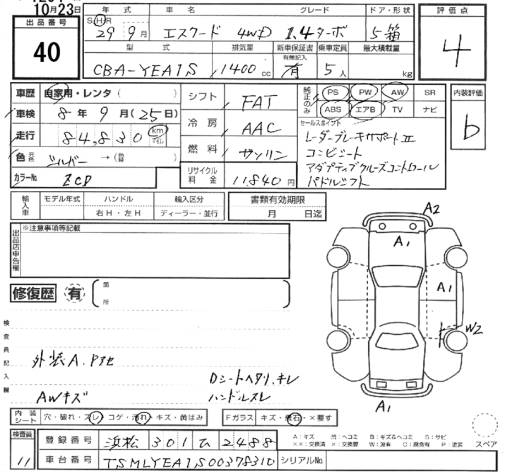 10月23日
出品番号
40
年式
SHR
29年9月
車名
エスクード 4WD
グレード
1.4ターボ
ドア・形状
5 箱
型式
CBA-YEA1S
排気量
1400cc
新車保証書
有無記入
有
乗車定員
5人
最大積載量
kg
評価点
4
車歴 自家用・レンタ( )
車検 8年9月(25日)
走行 84,830 km マイル
色 元色 シルバー → (替 )
カラーNo. ZCD
シフト FAT
冷房 AAC
燃料 ガソリン
リサイクル料金 11840円
純正のみ
PS PW AW SR
ABS エアB TV ナビ
セールスポイント
レーダーブレーキサポートⅡ
コンビシート
アダプティブクルーズコントロール
パドルシフト
内装評価
b
輸入車
モデル年式
ハンドル
右H・左H
輸入区分
ディーラー・並行
書類有効期限
月 日迄
出品店申告欄
※注意事項等記載
修復歴 有
箇所
検査員記入欄
外装A.P、凹
AWキズ
Dシートヘタリ.キレ
ハンドルスレ
A2
A1
A1
A1
W2
A1
内装シート 穴・破れ・スレ・コゲ・汚れ・キズ・黄ばみ
Fガラス キズ・飛石・×要す
A:キズ
スペア
検査員
11
登録番号 浜松 301 ひ 2488
車台番号 TSMLYEA1S00378310
シリアルNo.